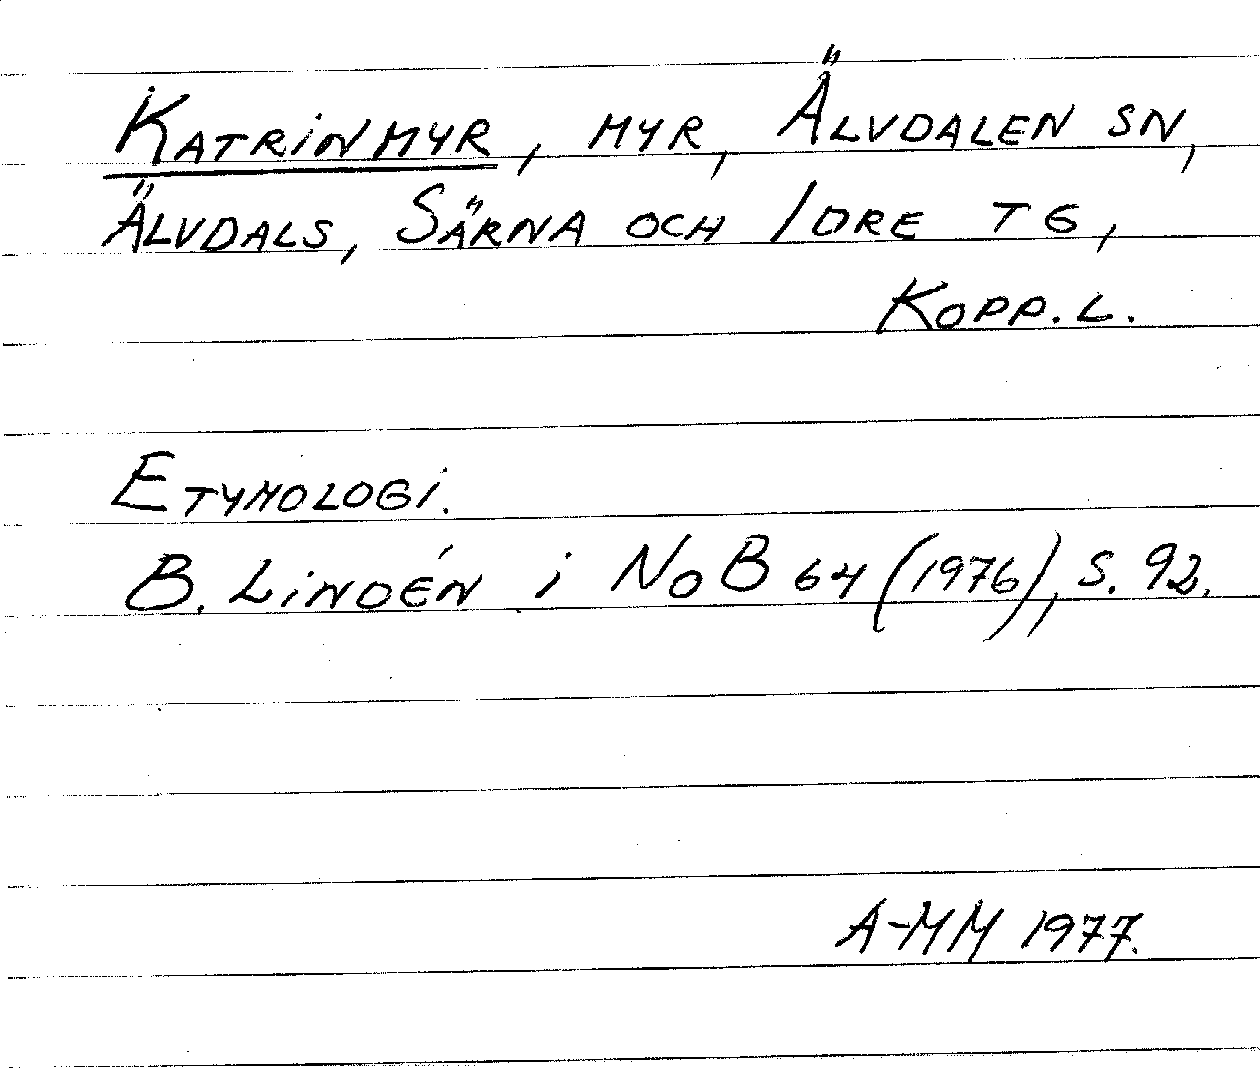 KATRINMYR, MYR, ÄLVDALEN SN,
ÄLVDALS, SÄRNA OCH IDRE TG,
KOPP. L.
ETYMOLOGI.
B. LINDÉN i NoB 64 (1976), S. 92.
A-MM 1977.